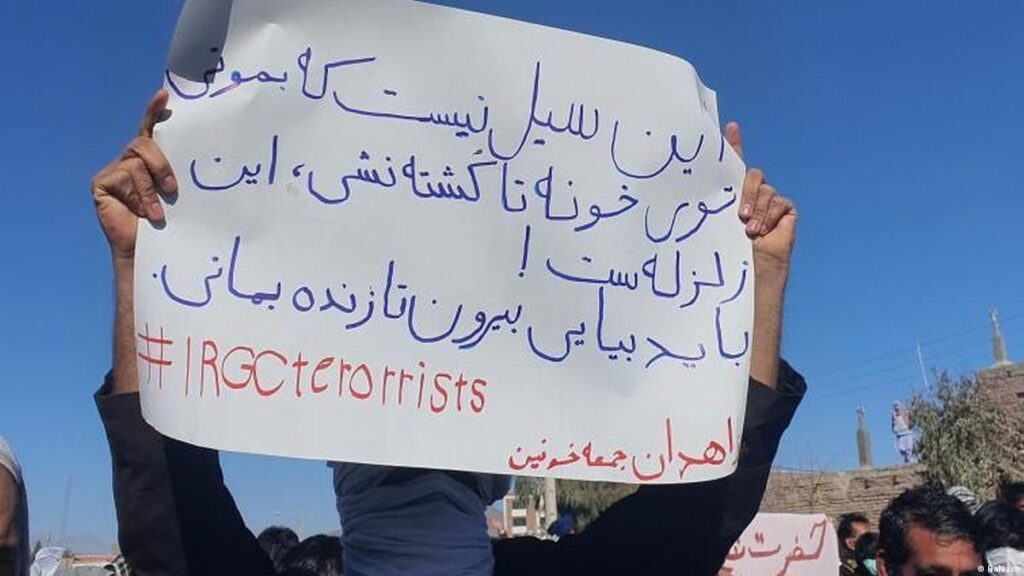 این سیل نیست که بمونی
توی خونه تا کُشته نشی، این
زلزله ست !
باید بیایی بیرون تا زنده بمانی.
#IRGCterorrists
اهدان جمعه خونین
نفرت